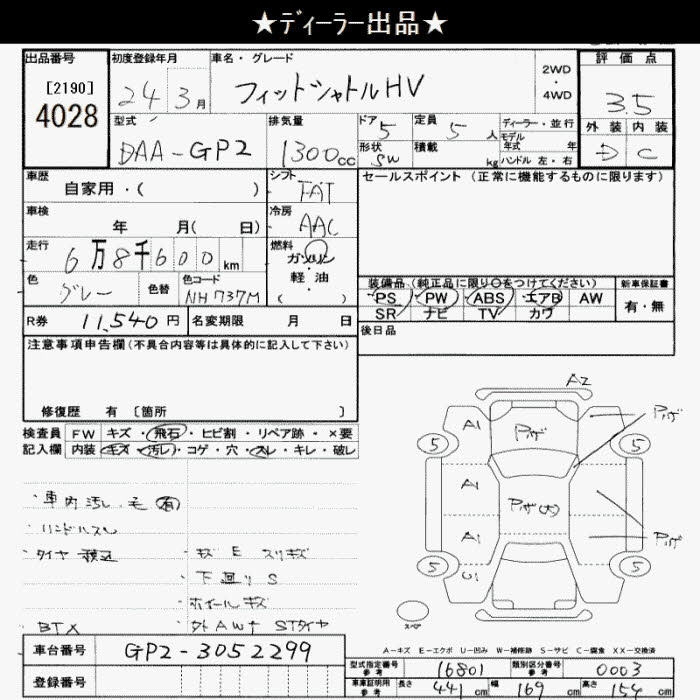 ★ディーラー出品★
出品番号
[2190]
4028
初度登録年月
24 3月
車名・グレード
フィットシャトルHV
2WD
・
4WD
評価点
3.5
外装 内装
D C
型式
DAA-GP2
排気量
1300cc
ドア 5
形状 SW
定員 5人
積載 kg
ディーラー・並行
モデル年式 年
ハンドル 左・右
車歴
自家用・( )
シフト
FAT
セールスポイント (正常に機能するものに限ります)
車検
年 月( 日)
冷房
AAC
走行
6万8千600km
燃料
ガソリン
・
軽油
( )
色
グレー
色替
色コード
NH737M
装備品 (純正品に限り○をつけてください)
PS・PW・ABS・エアB AW
SR ナビ TV カワ
新車保証書
有・無
R券 11,540円
名変期限 月 日
後日品
注意事項申告欄(不具合内容等は具体的に記入して下さい)
修復歴 有 [箇所 ]
検査員
記入欄
FW キズ・飛石・ヒビ割・リペア跡・×要
内装 キズ・汚レ・コゲ・穴・スレ・キレ・破レ
・車内汚レ・毛 有
・ハンドルスレ
・タイヤ
・キズ E スリキズ
・下廻りS
・ホイールキズ
・BTX
・外AWナ STタイヤ
A2
A1
A1
A1
U1
5
5
5
5
Pハゲ
Pハゲ(大)
Pハゲ
Pハゲ
スペア
A-キズ E-エクボ U-凹み W-補修跡 S-サビ C-腐食 XX-交換済
車台番号 GP2-3052299
登録番号
型式指定番号
参考
16801
類別区分番号
参考
0003
車庫証明用
参考
長さ 441cm
幅 169cm
高さ 154cm